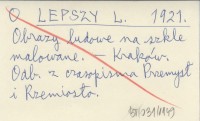 O LEPSZY L. 1921.
Obrazy ludowe na szkle
malowane. — Kraków.
Odb. z czasopisma Przemysł
i Rzemiosło.